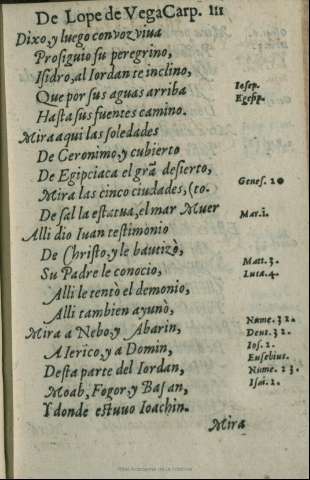 De Lope de Vega Carp. 111
Dixo, y luego con voz viua
Prosiguio su peregrino,
Isidro, al Iordan te inclino,
Que por sus aguas arriba
Iosep.
Hasta sus fuentes camino.
Egesip.
Mira aqui las soledades
De Geronimo, y cubierto
De Egipciaca el grã desierto,
Mira las cinco ciudades, (to.
Genes. 20
De sal la estatua, el mar Muer
Mar. 1.
Alli dio Iuan testimonio
De Christo, y le bautizò,
Matt. 3.
Su Padre le conocio,
Luca. 4.
Alli le tentò el demonio,
Alli tambien ayunò,
Nume. 32.
Mira a Nebo, y Abarin,
Deut. 32.
A Ierico, y a Domin,
Ios. 1.
Desta parte del Iordan,
Eusebius.
Nume. 23.
Moab, Fogor, y Basan,
Isai. 2.
Y donde estuuo Ioachin.
Mira